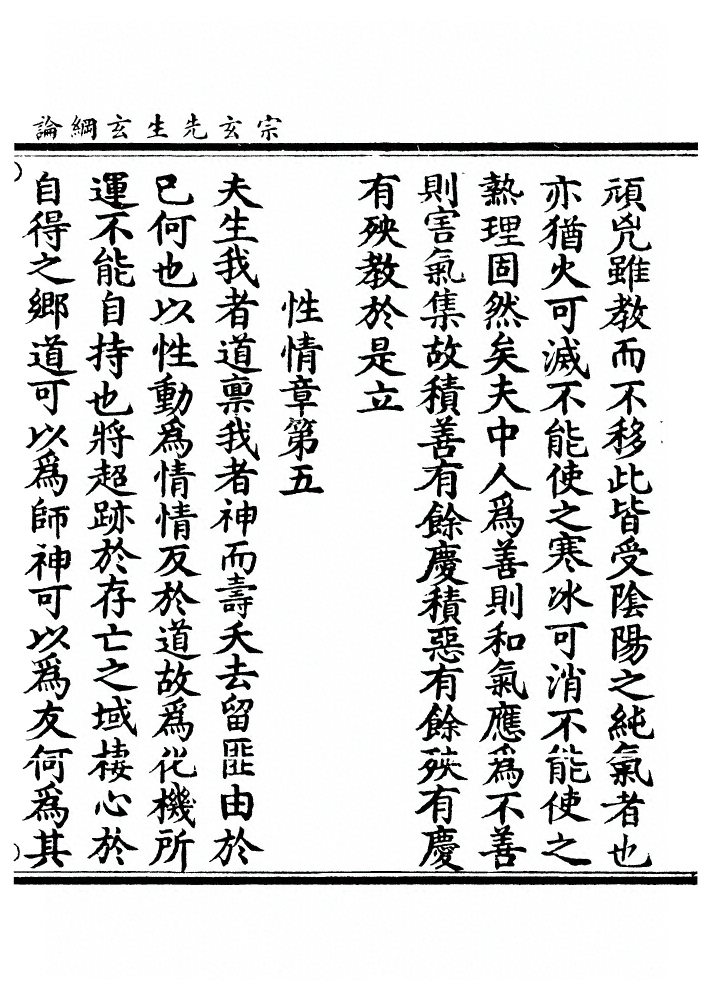 宗玄先生玄綱論
頑兇雖教而不移此皆受陰陽之純氣者也
亦猶火可滅不能使之寒冰可消不能使之
熱理固然矣夫中人爲善則和氣應爲不善
則害氣集故積善有餘慶積惡有餘殃有慶
有殃教於是立
性情章第五
夫生我者道稟我者神而壽夭去留匪由於
已何也以性動爲情情反於道故爲化機所
運不能自持也將超跡於存亡之域棲心於
自得之鄉道可以爲師神可以爲友何爲其